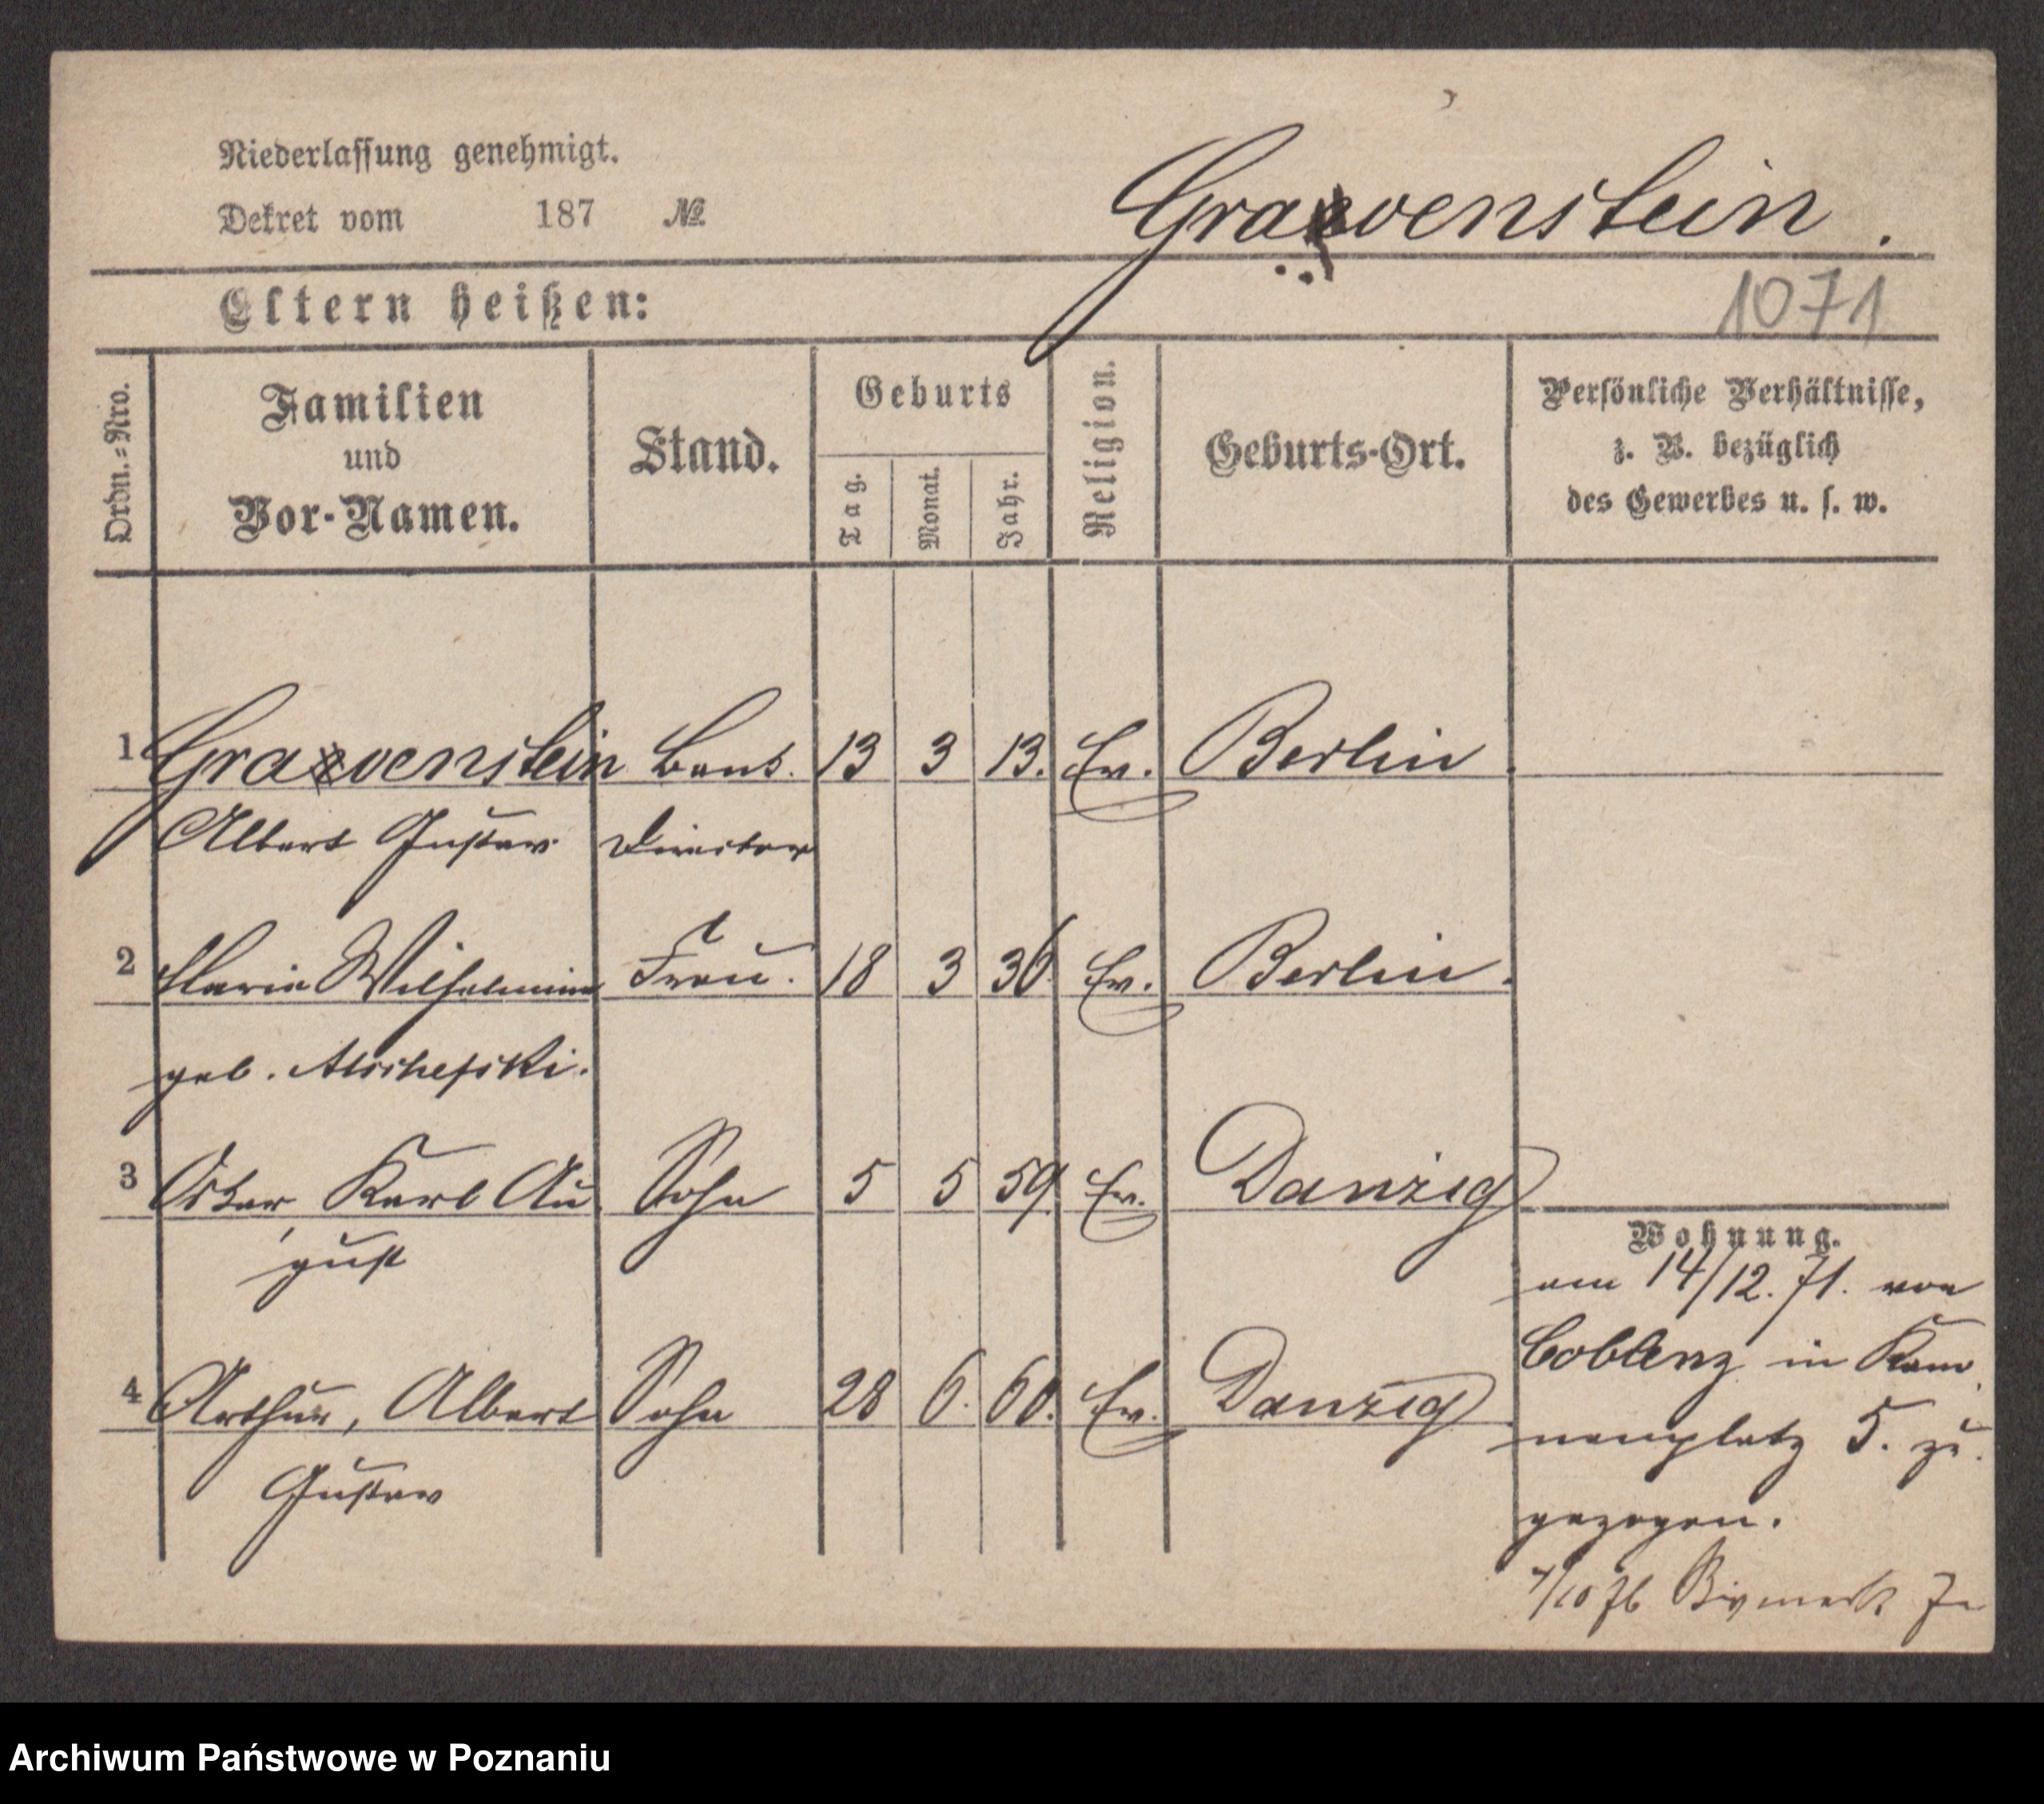 Niederlassung genehmigt.
Dekret vom 187 №
Graevenstein.
Eltern heißen:
1071
Ordn.=Nro.
Familien
und
Vor-Namen.
Stand.
Geburts
Tag.
Monat.
Jahr.
Religion.
Geburts-Ort.
Persönliche Verhältnisse,
z. B. bezüglich
des Gewerbes u. s. w.
1 Graevenstein Bank. 13 3 13. Ev. Berlin
Albert Gustav Director
2 Maria Wilhelmine Frau. 18 3 36 Ev. Berlin.
geb. Alschefski.
3 Oskar Karl Au Sohn 5 5 59. Ev. Danzig
gust
Wohnung.
am 14/12. 71. von
Coblenz in Kano
4 Arthur, Albert Sohn 28 6. 60. Ev. Danzig
nenplatz 5. zu
Gustav
gezogen.
/10 76 Bismark
Archiwum Państwowe w Poznaniu